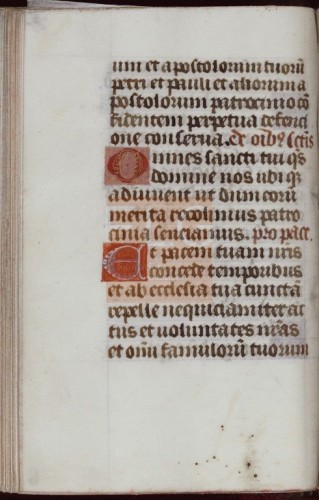 um et apostolorum tuorū
petri et pauli et aliorum a
postolorum patrocinio cō
fidentem perpetua defenci
one conserua. de oīb9 sctis
Omnes sancti tui qs
domine nos ubi qꝫ
adiuuent ut dum eorū
merita recolimus patro
cinia senciamus. pro pace.
Et pacem tuam nr̄is
concede temporibus
et ab ecclesia tua cunctā
repelle nequiciam iter ac
tus et uoluntates nr̄as
et om̄i famulorū tuorum